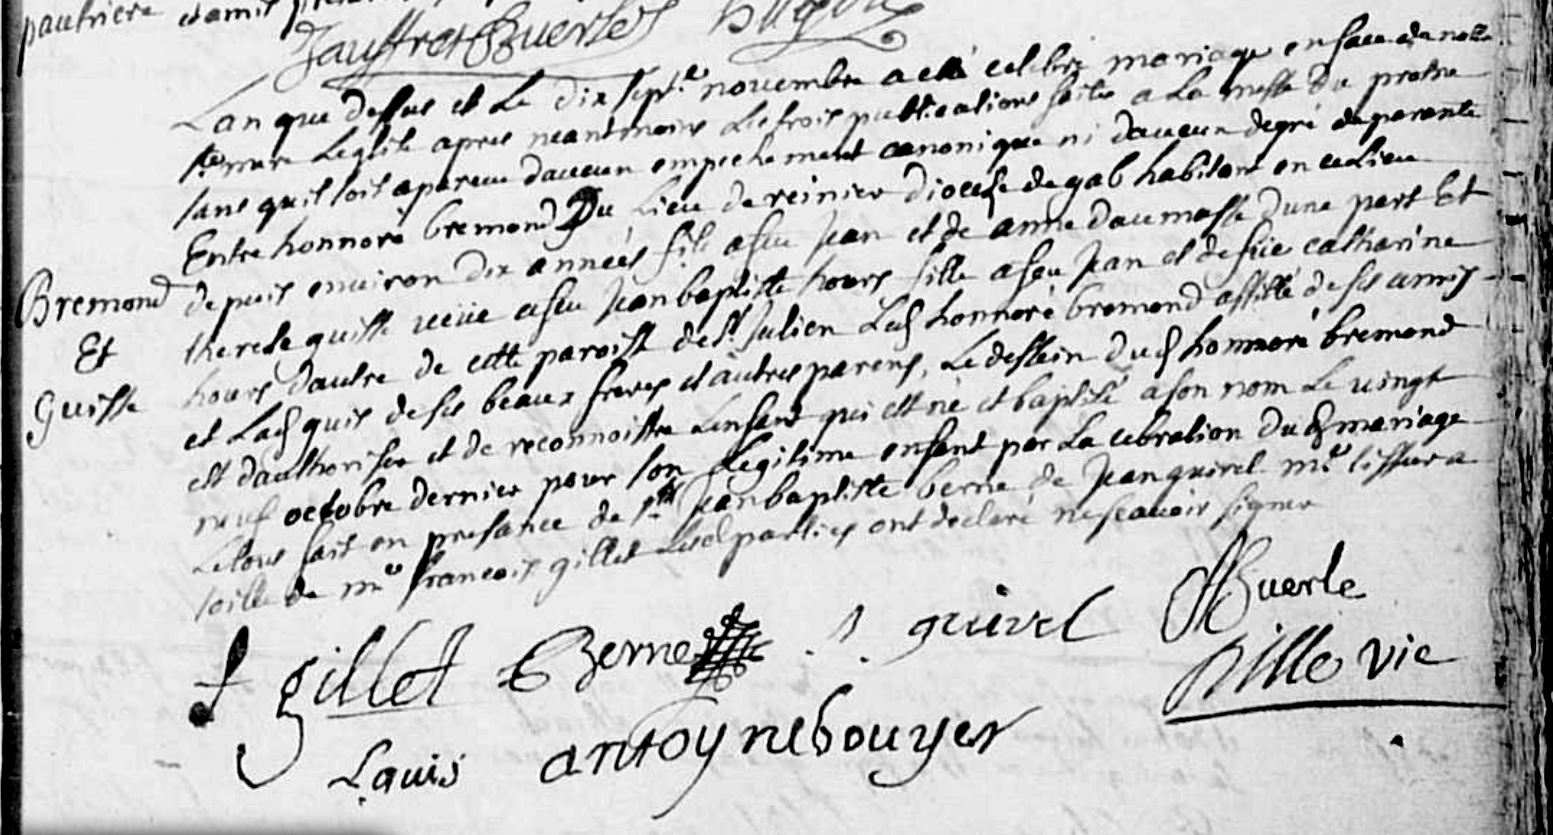 pautriere et amis
Jauffret Buerle
Lan que dessus et Le dix sept.e novembre a esté celebré mariage en face de nôe
Ste mere Leglise apres neantmoins Les trois publications faites a La messe du prosne
sans quil soit apareu daucun empechement canonique ni daucun degré de parenté
Entre honnoré bremond Du Lieu de reinier diocese de gab habitant en ce Lieu
depuis environ dix années fils a feu Jean et de anne daumasse dune part Et
therese quisse veüe a feu Jean baptiste hours fille a feu Jean et de füe catharine
Bremond
Et
Guisse
hours dautre de cette paroisse de St Julien Led honnoré bremond assisté de ses amis
et Lad quis de ses beaux freres et autres parens, Le dessein dud honnoré bremond
est dauthoriser et de reconnoistre Lenfant qui est né et baptisé a son nom Le vingt
neuf octobre dernier pour son Legitime enfant par La cebration dud mariage
Le tout fait en presance de Jean baptiste berne de Jean quirel m.e tisseur a
toille de m.e francois gillet Lesd parties ont declaré ne scavoir signer
f gillet Berne J quirel Buerle
Louis antoyne bouyer vic